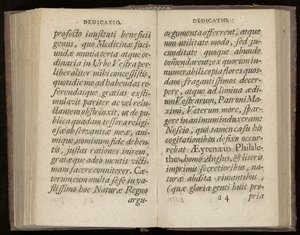 DEDICATIO.
profectò inusitati beneficii
genus, quo Medicinæ faciundæ
munia certa atque ordinaria
in Urbe Vestra per
liberaliter mihi concessistis,
quotidie me ad habendas referendasque
gratias existimulavit
pariter ac vel reluctantem
obstrinxit, ut de publico
quodam tesserâ religiosæ
observantiæ meæ, animique
nominum fide debentis,
justas rationes inirem,
gratæque adeo mentis victimam
facere conniterer. Cæterum
cum multa sese in vastissimo
hoc Naturæ Regno
argu-
DEDICATIO.
argumenta offerrent, atque
non utilitate modò, sed jucunditate
quoque abundè
commendarent, ex quorum innumerabili
copia flores quosdam,
fragantissimos decerpere,
atque ad limina ædium
Vestrarum, Patroni Maximi,
Veterum more, spargere
in animum induxeram:
Nescio, quo tamen casu his
cogitationibus defixo occurrebat
Æyrenæus Philalethes,
homo Anglus, & literis
inprimis secretioribus, naturæ
abditæ rimantibus,
(quæ gloria genti huic pro-
a 4
pria